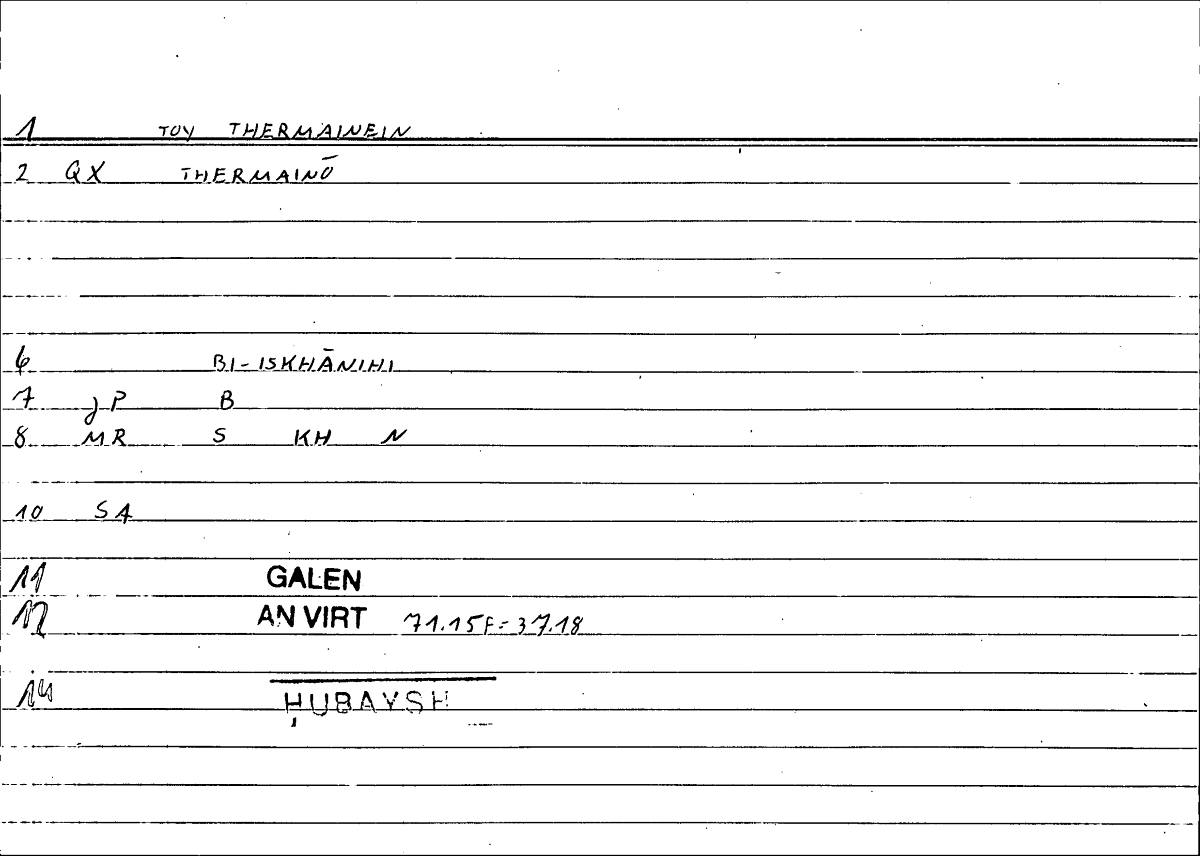 1 TOY THERMAINEIN
2 QX THERMAINŌ
6 BI-ISKHĀNIHI
7 JP B
8 MR S KH N
10 SA
11 GALEN
12 AN VIRT 71.15F=37.18
14 ḤUBAYSH